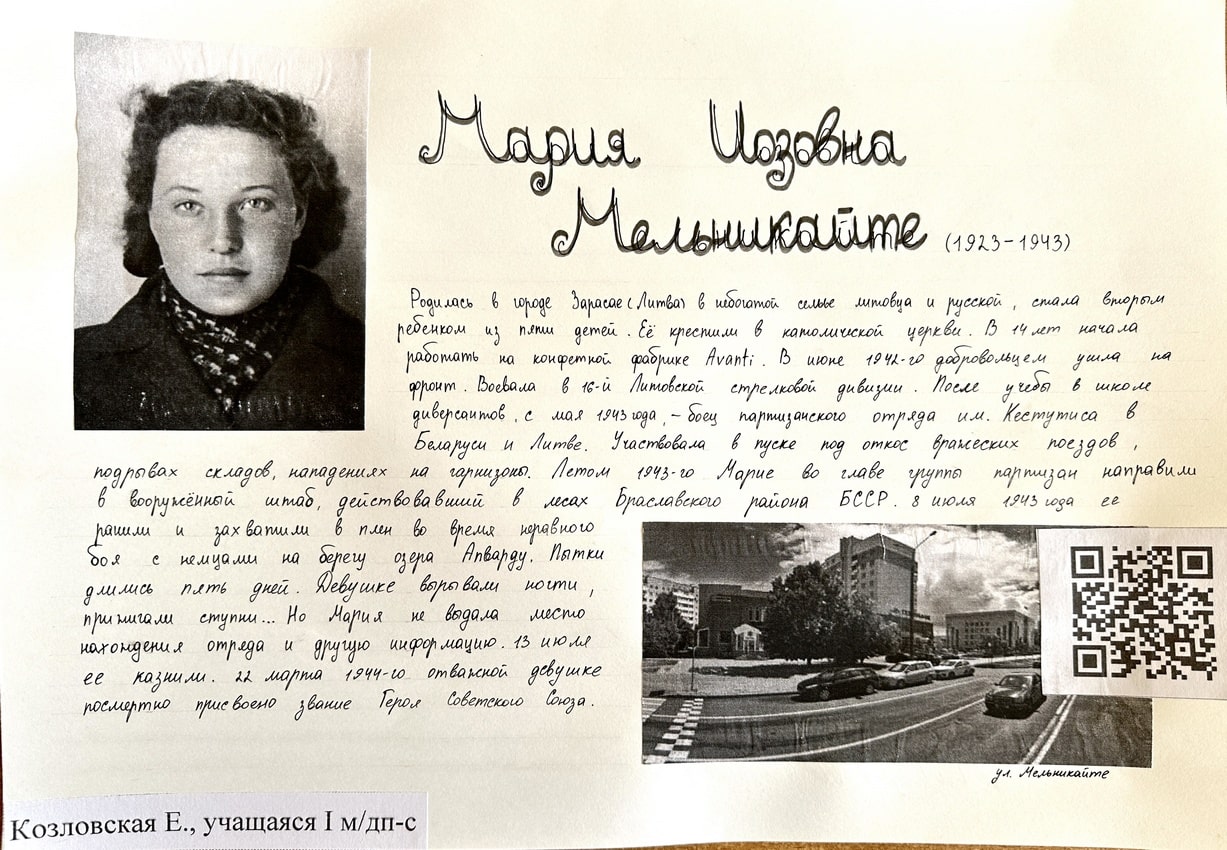 Мария Иозовна
Мельникайте (1923-1943)
Родилась в городе Зарасае (Литва) в небогатой семье литовца и русской, стала вторым
ребенком из пяти детей. Её крестили в католической церкви. В 14 лет начала
работать на конфетной фабрике Avanti. В июне 1942-го добровольцем ушла на
фронт. Воевала в 16-й Литовской стрелковой дивизии. После учебы в школе
диверсантов, с мая 1943 года, - боец партизанского отряда им. Кестутиса в
Беларуси и Литве. Участвовала в пуске под откос вражеских поездов,
подрывах складов, нападениях на гарнизоны. Летом 1943-го Марие во главе группы партизан направили
в вооружённый штаб, действовавший в лесах Браславского района БССР. 8 июля 1943 года ее
ранили и захватили в плен во время неравного
боя с немцами на берегу озера Апварду. Пытки
длились пять дней. Девушке вырывали ногти,
прижигали ступни... Но Мария не выдала место
нахождения отреда и другую информацию. 13 июля
ее казнили. 22 марта 1944-го отважной девушке
посмертно присвоено звание Героя Советского Союза.
ул. Мельникайте
Козловская Е., учащаяся I м/дп-с